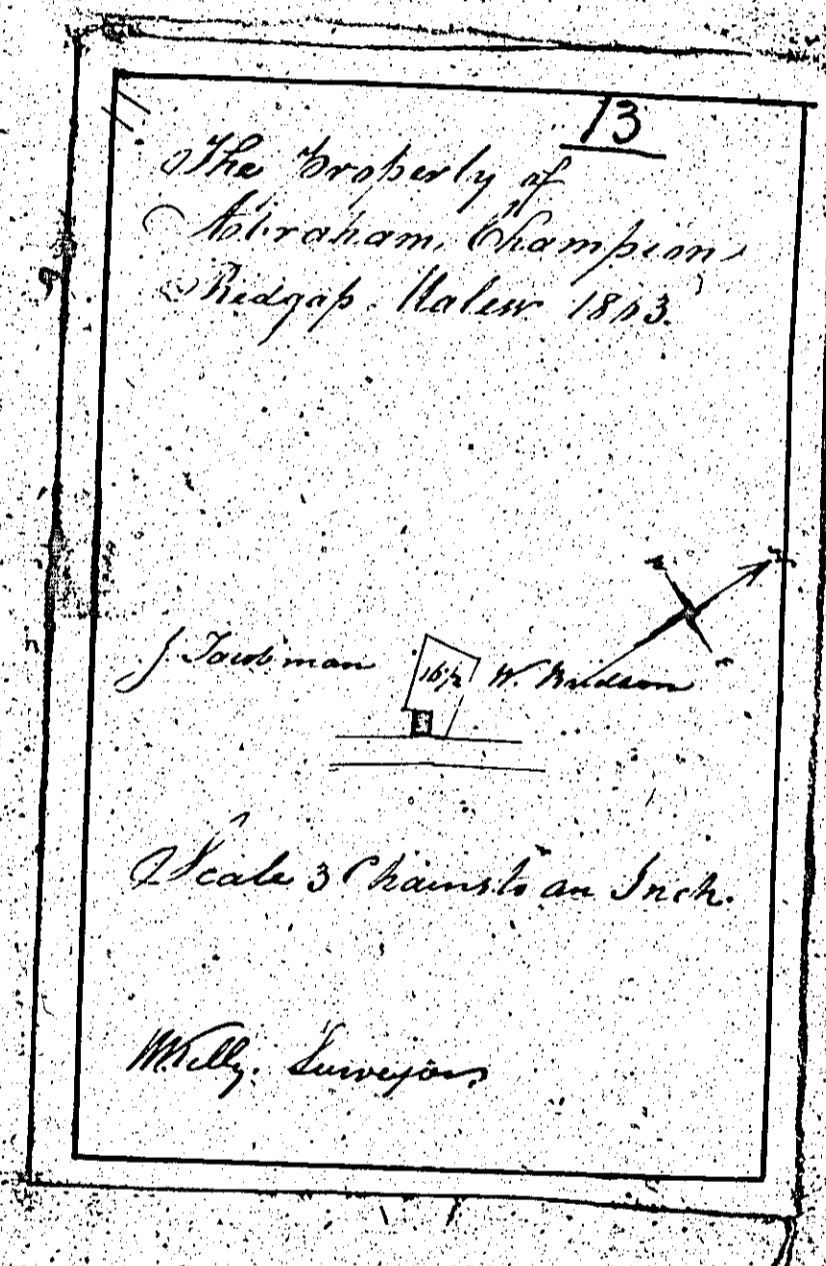 13
The Property of
Abraham Champion
Redgap. Malew
J. Taubman
16 1/2
W.
Scale 3 Chains to an Inch.
W. Kelly. Surveyor